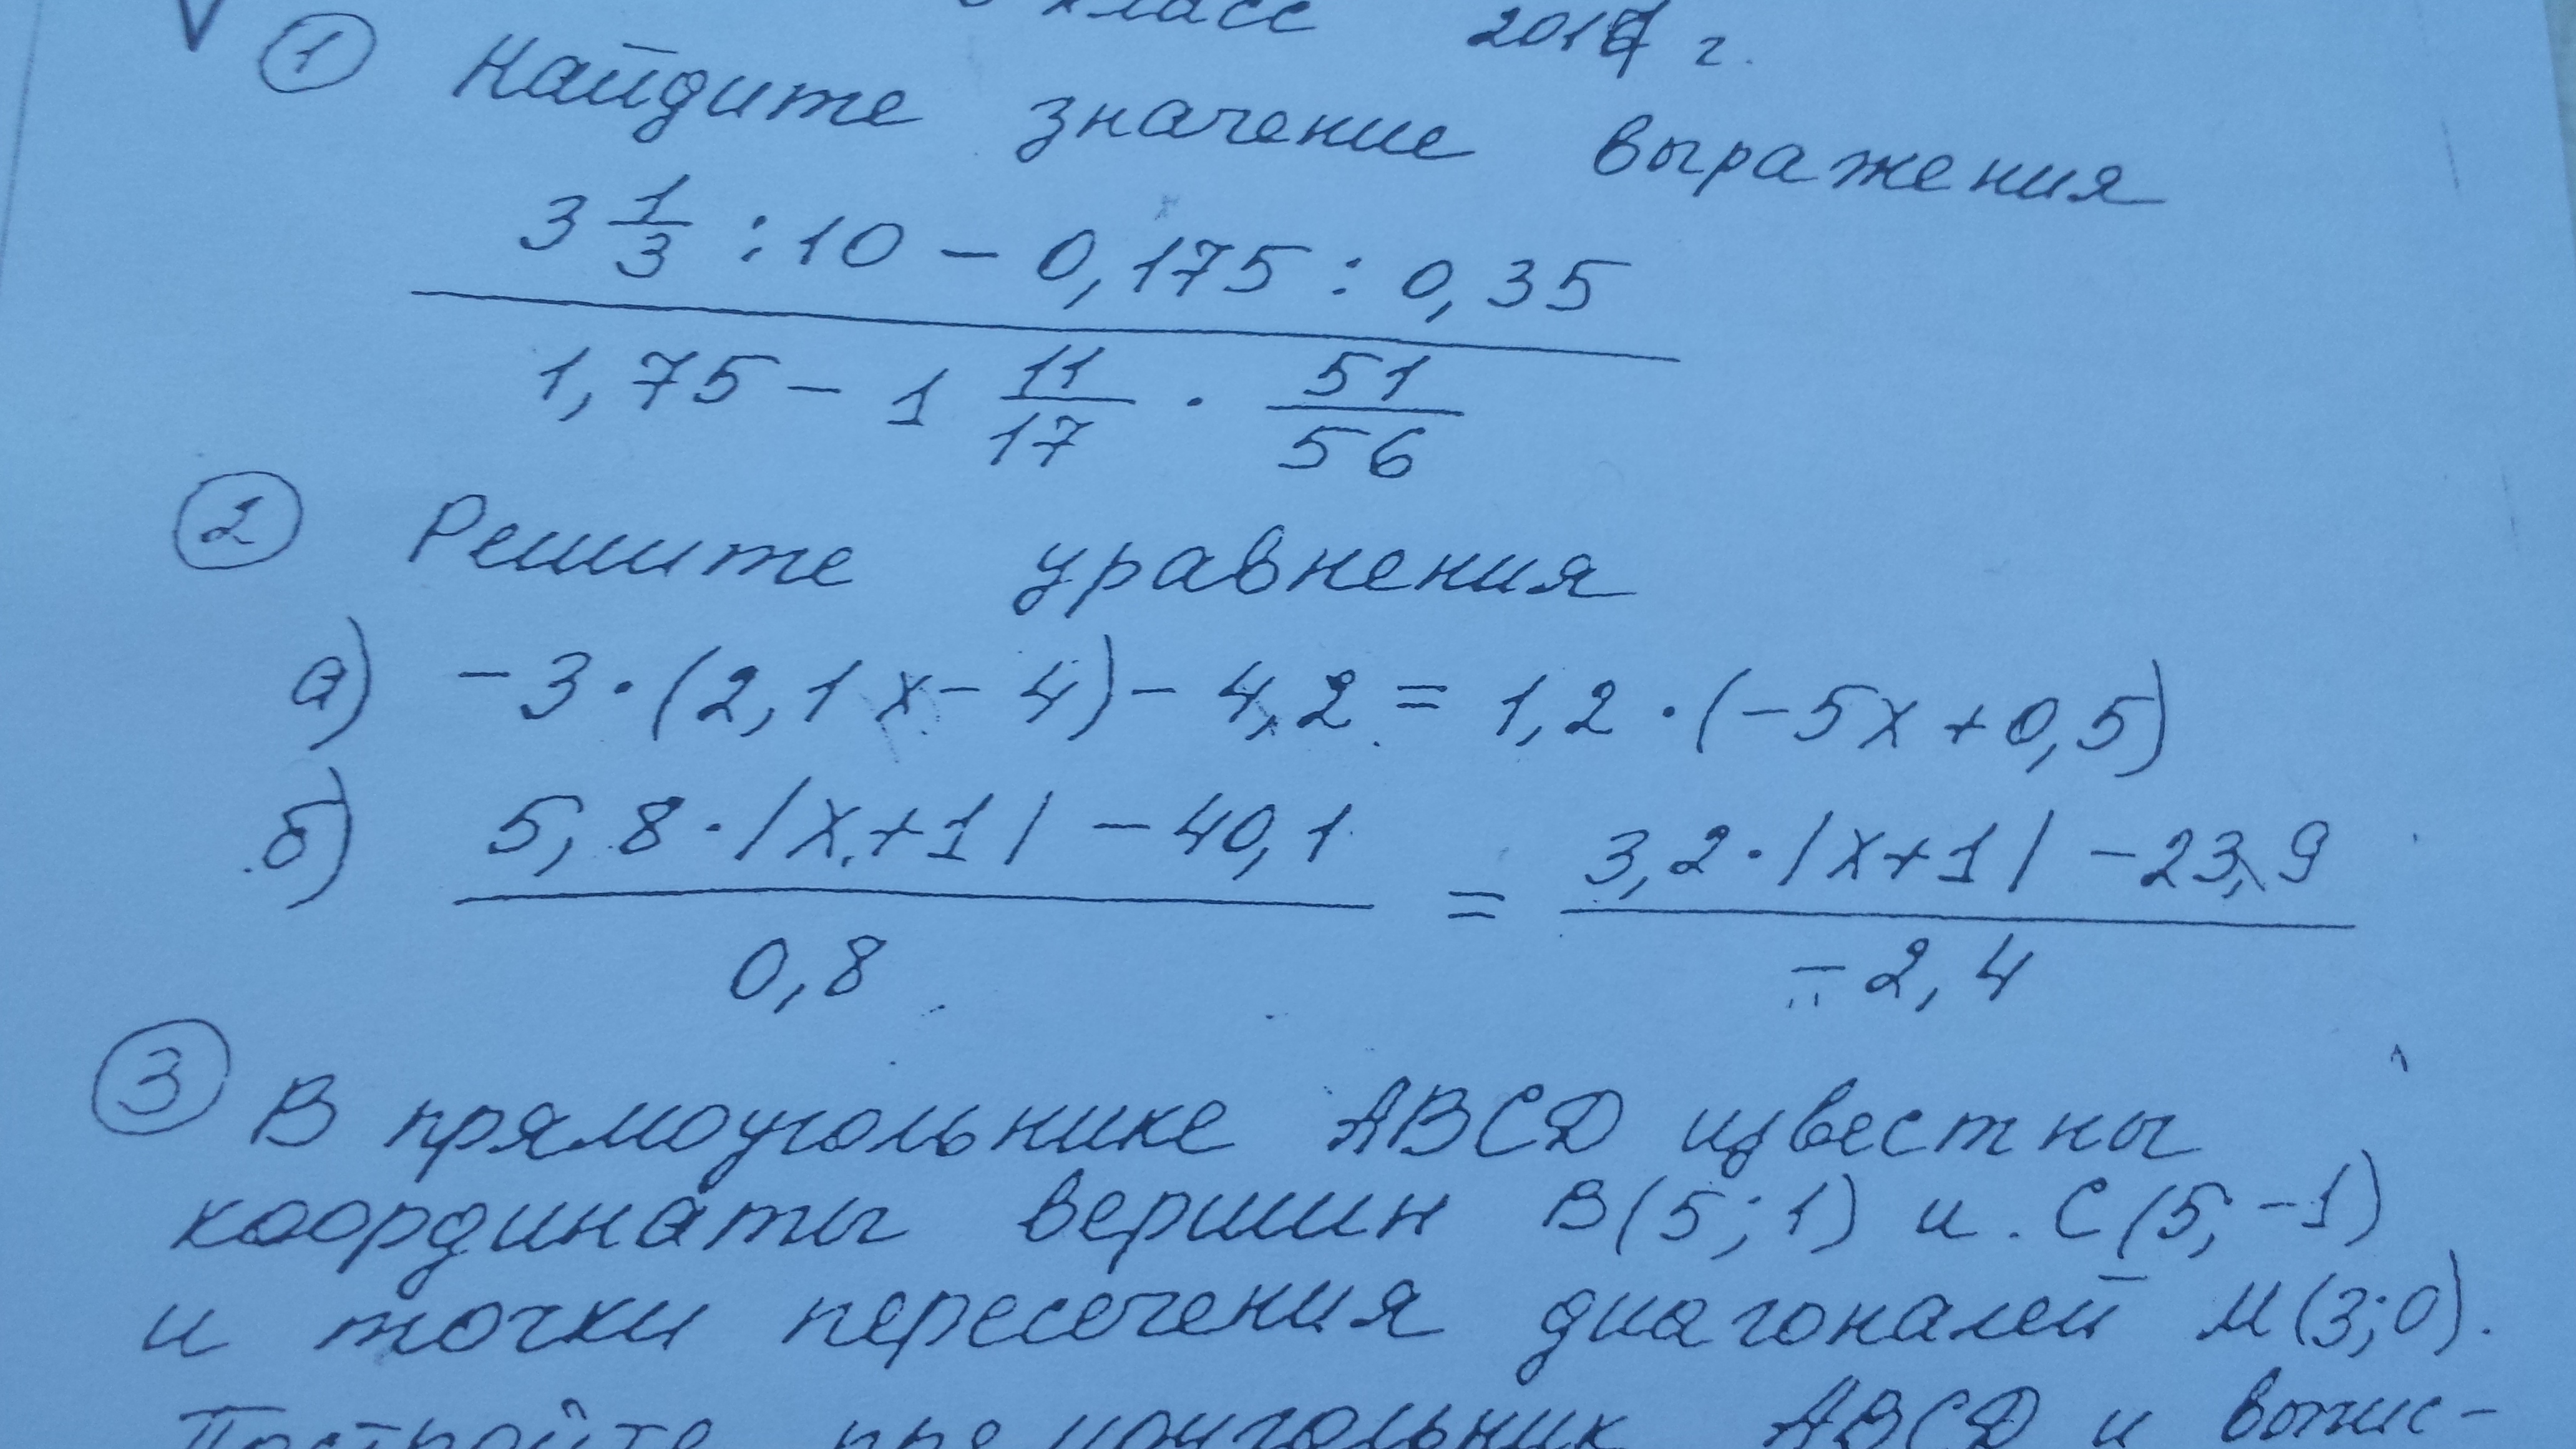 класс 2017 г.
① Найдите значение выражения
3 1/3 : 10 - 0,175 : 0,35
1,75 - 1 11/17 · 51/56
② Решите уравнения
а) -3·(2,1x - 4) - 4,2 = 1,2·(-5x + 0,5)
б) 5,8·|x+1| - 40,1 / 0,8 = 3,2·|x+1| - 23,9 / -2,4
③ В прямоугольнике ABCD известны
координаты вершин B(5;1) и C(5;-1)
и точки пересечения диагоналей M(3;0).
Постройте прямоугольник ABCD и вычис-